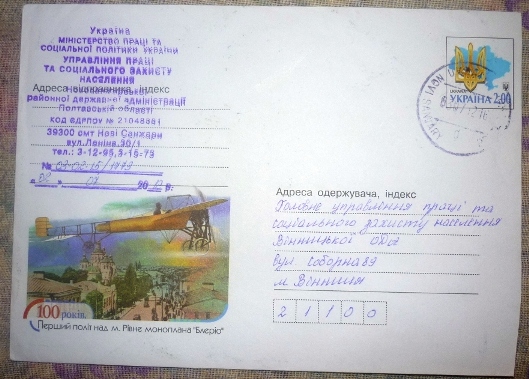 Україна
МІНІСТЕРСТВО ПРАЦІ ТА
СОЦІАЛЬНОЇ ПОЛІТИКИ УКРАЇНИ
УПРАВЛІННЯ ПРАЦІ
ТА СОЦІАЛЬНОГО ЗАХИСТУ
НАСЕЛЕННЯ
Адреса відправника, індекс
Новосанжарської
районної державної адміністрації
Полтавської області
КОД ЄДРПОУ № 21048881
39300 смт Нові Санжари
вул.Леніна,30/1
тел.: 3-12-95,3-15-73
№ 02-02-15/1973
УКРАЇНА 2,00
Адреса одержувача, індекс
Головне управління праці та
соціального захисту населення
Вінницької ОДА
вул соборна 69
м Вінниця
21100
100 років
Перший політ над м. Рівне моноплана "Блеріо"